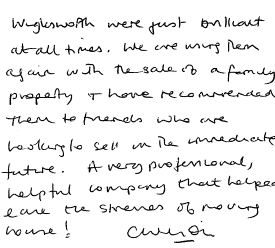 Wigksworth were just brilliant
at all times. We are using them
again with the sale of a family
property & have recommended
them to friends who are
looking to sell in the immediate
future. A very professional,
helpful company that helped
ease the stresses of moving
house!